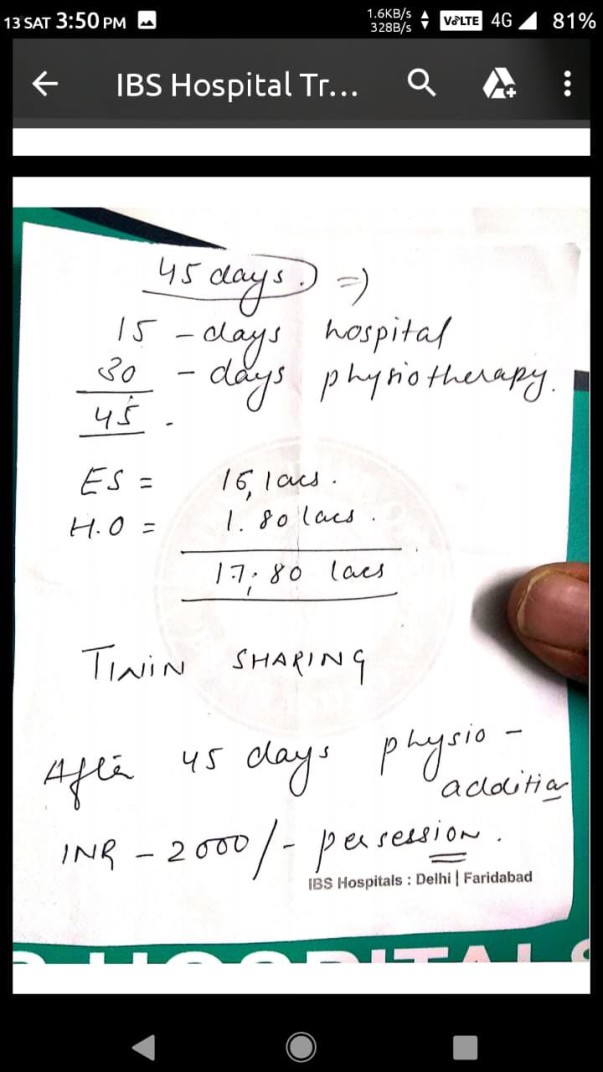 13 SAT 3:50 PM 1.6KB/s 328B/s VoLTE 4G 81%
IBS Hospital Tr...
45 days. =>
15 - days hospital
30 - days physiotherapy.
45.
ES = 16, lacs.
H.O = 1.80 lacs.
17.80 lacs
TWIN SHARING
After 45 days physio -
addition
INR - 2000/- per session.
IBS Hospitals : Delhi | Faridabad
HOSPITALS